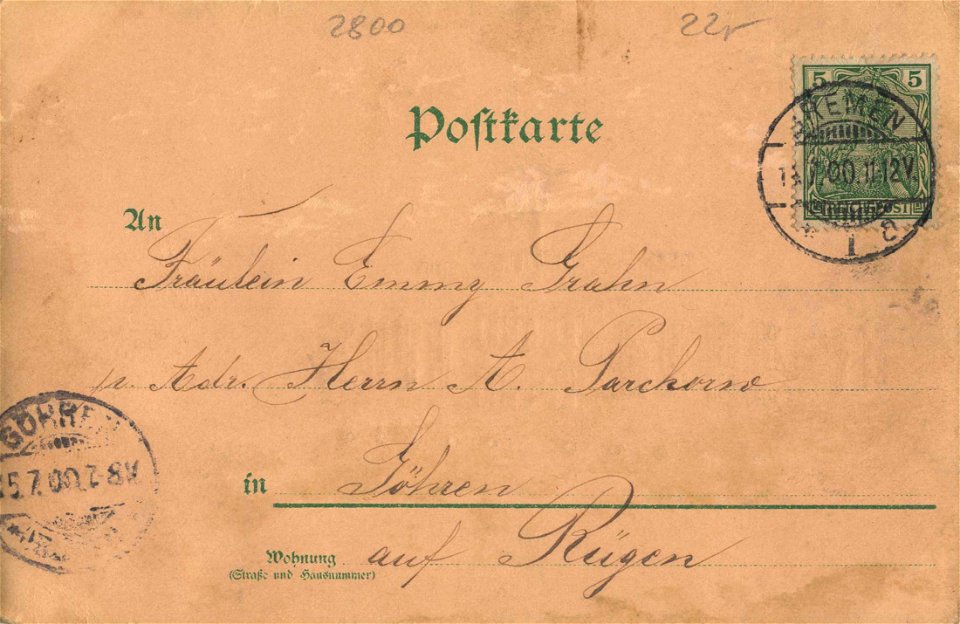 2800 22
Postkarte
5 5
BREMEN
.00.11-12V.
* 1 a
An
Fräulein Emmy Grahn
p. Adr. Herrn A. Parchow
GÖHREN
.7.00.
in Göhren
Wohnung auf Rügen
(Straße und Hausnummer)